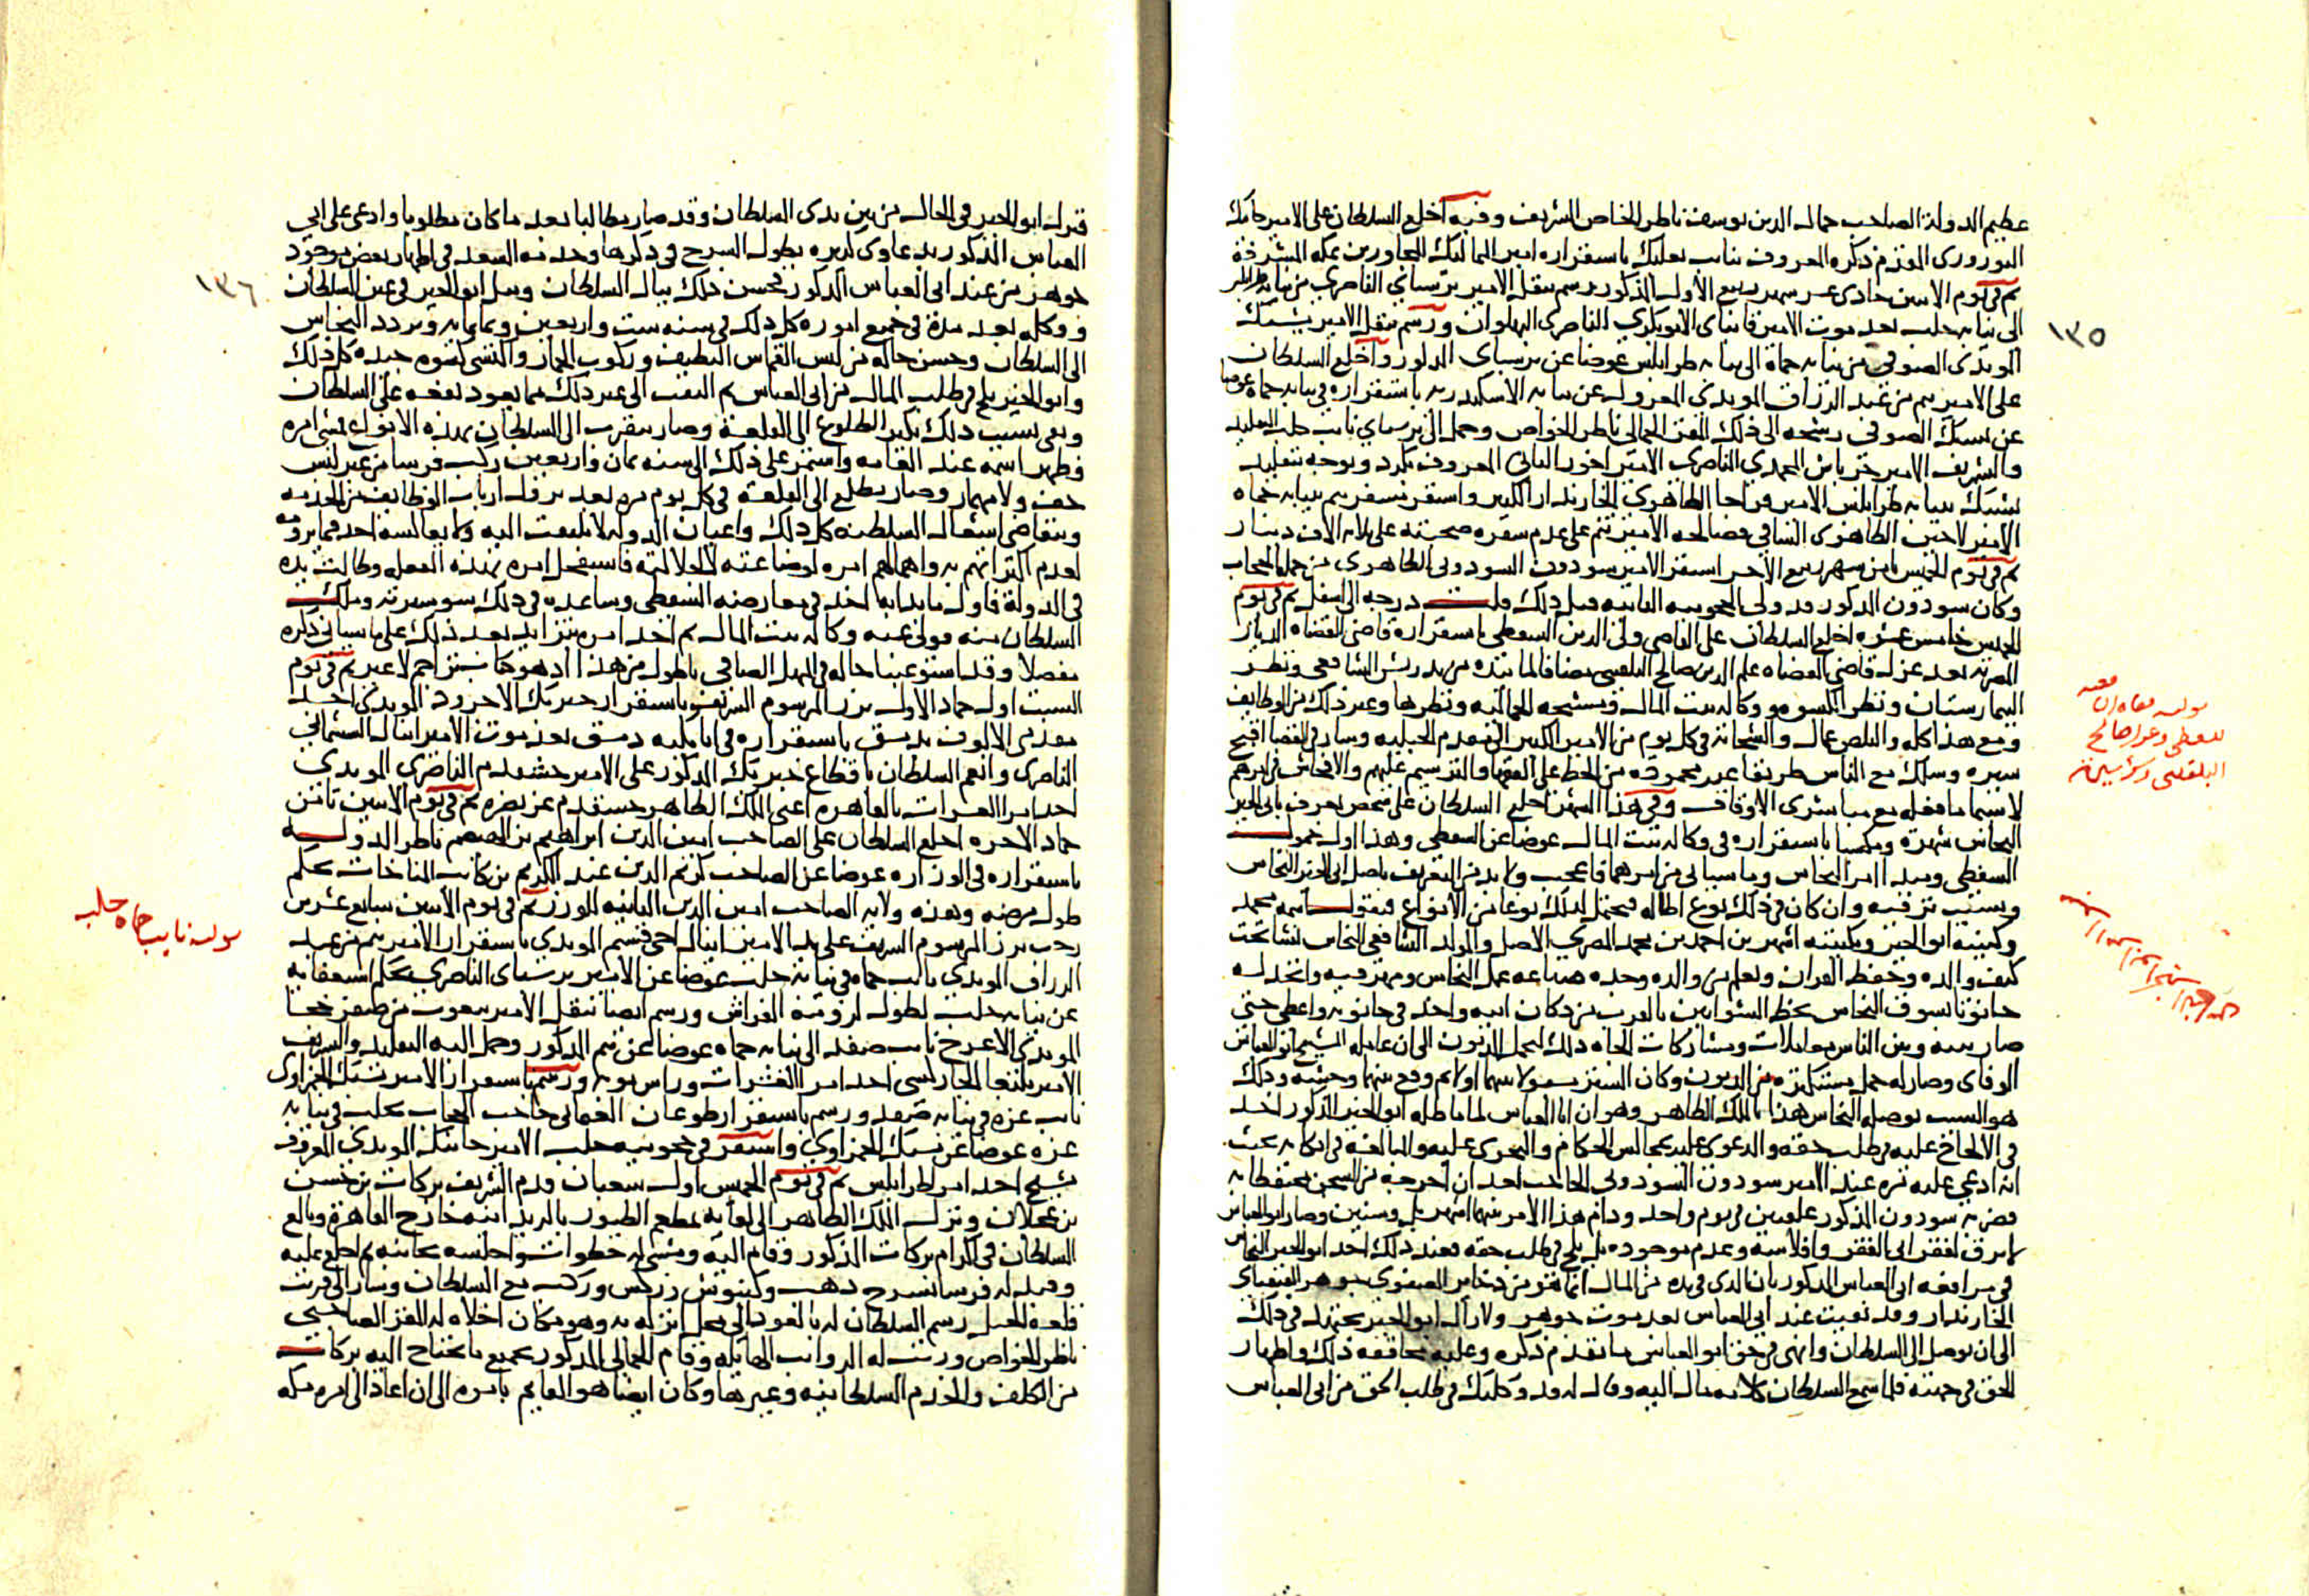 عظيم الدولة الصاحب جمال الدين يوسف ناظر الخاص الشريف وفيه أخلع السلطان على الامير جانبك
النوروزى المقدم ذكره المعروف بنائب بعلبك باستقراره امير المماليك المجاورين بمكه المشرفة
ثم فى يوم الاثنين حادى عشر شهر ربيع الأول المذكور رسم بنقل الامير برسباى الناصرى من نيابة طرابلس
الى نيابه حلب بعد موت الامير قانباى الابوبكرى الناصرى البهلوان ورسم بنقل الامير يشبك
المويدى الصوفى من نيابه حماة الى نيابه طرابلس عوضا عن برسباى المذكور وأخلع السلطان
على الامير تنم من عبد الرزاق المويدى المعزول عن نيابه الاسكندريه باستقراره فى نيابه حماه عوضا
عن يشبك الصوفى رشحه الى ذلك المقر الجمالى ناظر الخواص وحمل الى برسباى نائب حلب التقليد
والتشريف الامير جرباش المحمدى الناصرى الامير اخور الثانى المعروف بكرد وتوجه بتقليد
يشبك بنيابه طرابلس الامير قراجا الظاهرى الخازندار الكبير واستقر مسفر تنم بنيابه حماه
الأمير لاجين الظاهرى الساقى فصالحه الأمير تنم على عدم سفره صحبته على ثلاثه الاف دينار
ثم فى يوم الخميس ثامن شهر ربيع الاخر استقر الامير سودون السودونى الظاهرى من جمله الحجاب
وكان سودون المذكور قد ولى الحجوبيه الثانيه قبل ذلك قلت درجه الى اسفل ثم فى يوم
الخميس خامس عشره اخلع السلطان على القاضى ولى الدين السفطى باستقراره قاضى القضاه الديار
المصريه بعد عزل قاضى القضاه علم الدين صالح البلقينى مضافا لما بيده من تدريس الشافعى ونظر
البيمارستان ونظر الكسوه ووكاله بيت المال ومشيخه الجماليه ونظرها وغير ذلك من الوظايف
ومع هذا كله والناس عمال والشحانه فى كل يوم من الامير الكبير الى مقدم الجبليه وسار فى القضا اقبح
سيره وسلك مع الناس طريقا غير محموده من الحط على الفقها والترسيم عليهم والافحاش فى امرهم
لا سيما ما فعله مع مباشرى الاوقاف وفى هذا الشهر اخلع السلطان على شخص يعرف بابى الخير
النحاس شهرة ومكسبا باستقراره فى وكاله بيت المال عوضا عن السفطى وهذا اول خمول
السفطى ومبدا امر النحاس وما سياتى من امرهما فاعجب ولا بد من التعريف باصل ابى الخير النحاس
وبسبب ترقيه وان كان فى ذلك نوع اطاله فيحتمل لذلك نوعا من الأنواع فنقول اسمه محمد
وكنيته ابو الخير وبكنيته اشهر بن احمد بن محمد المصرى الاصل والمولد الشافعى النحاس نشا تحت
كنف والده وحفظ القران وتعلم من والده وجده صناعه عمل النحاس ومهر فيه واتخذ له
حانوتا بسوق النحاس بخط الشوايين بالقرب من دكان ابيه واخذ فى حانوته واعطى حتى
صار بينه وبين الناس معاملات ومشاركات الجاه ذلك لتحمل الديون الى ان عامله الشيخ ابو العباس
الوفاى وصار له جمل مستكثره من الديون وكان الستر مسبولا بينهما اولا ثم وقع بينهما وحشه وذلك
هو السبب لوصله النحاس هذا بالملك الظاهر وهو ان ابا العباس لما ماطله ابو الخير المذكور اخذ
فى الالحاح عليه فى طلب حقه والدعوى عليه بمجالس الحكام والتجرى عليه والمبالغه فى انكائه بحيث
انه ادعى عليه مره عند الامير سودون السودونى الحاجب بعد ان أخرجه من السجن محتفظا به
فضربه سودون المذكور علقتين فى يوم واحد ودام هذا الأمر بينهما اشهر بل وسنين وصار ابو العباس
لا يرق لفقر ابى الفقر وافلاسه وعدم موجوده بل يلح فى طلب حقه فعند ذلك اخذ ابو الخير النحاس
فى مرافعه ابى العباس المذكور بان الذى فى يده من المال انما هو من ذخاير الصفوى جوهر القنقباى
الخازندار وقد بقيت عند ابى العباس بعد موت جوهر ولا زال ابو الخير يجتهد فى ذلك
الى ان توصل الى السلطان وانهى فى حق ابو العباس ما تقدم ذكره وعليه محاققه ذلك واظهار
الحق فى جهته فلما سمع السلطان كلامه مال اليه وقال له قد وكلتك فى طلب الحق من ابى العباس
١٣٥
للسفطى وعزل صالح
البلقينى
فنزل ابو الخير فى الحال من بين يدى السلطان وقد صار مطالبا بعد ما كان مطلوبا وادعى على ابى
العباس المذكور بدعاوى كثيره يطول الشرح فى ذكرها وخدمه السعد فى اظهار بعض موجود
جوهر من عند ابى العباس المذكور فحسن ذلك ببال السلطان ونبل ابو الخير فى عين السلطان
ووكله بعد مدة فى جميع اموره كل ذلك فى سنه ست واربعين وثمانمايه وتردد النحاس
الى السلطان وحسن حاله من لبس القماش النظيف وركوب الحمار واكتسى كسوه جيده كل ذلك
وابو الخير يلح فى طلب المال من ابى العباس ثم التفت الى غير ذلك مما يعود نفعه على السلطان
وبقى بسبب ذلك يكثر الطلوع الى القلعة وصار يتقرب الى السلطان بهذه الانواع فمشى امره
وظهر اسمه عند العامه واستمر على ذلك الى سنه ثمان واربعين ركب فرسا من غير لبس
خف ولا مهماز وصار يطلع الى القلعة فى كل يوم مره بعد نزول ارباب الوظايف من الخدمه
ويتقاضى اشغال السلطنه كل ذلك واعيان الدوله لا يلتفت اليه ولا يعاكسه احد فيما يرومه
لعدم اكتراثهم به واهمالهم امره لوضاعته لا لجلالته فاستفحل امره بهذه الفعله وطالت يده
فى الدولة فاول ما بدا به اخذ فى معارضه السفطى وساعده فى ذلك سو سيرته وملك
السلطان منه فولى عنه وكاله بيت المال ثم اخذ امره يتزايد بعد ذلك على ما سياتى ذكره
مفصلا وقد استوعبنا حاله فى المنهل الصافى باطول من هذا اذ هو كتاب تراجم لا غير ثم فى يوم
السبت اول جماد الاولى برز المرسوم الشريف باستقرار خيربك الاجرود المويدى احد
مقدمى الالوف بدمشق باستقراره فى اتابكيه دمشق بعد موت الأمير اينال الششمانى
الناصرى وانعم السلطان باقطاع خيربك المذكور على الامير خشقدم الناصرى المويدى
احد امرا العشرات بالقاهره اعنى الملك الظاهر خشقدم عز نصره ثم فى يوم الاثنين ثامن
جماد الاخره اخلع السلطان على الصاحب امين الدين ابراهيم بن الهيصم ناظر الدوله
باستقراره فى الوزاره عوضا عن الصاحب كريم الدين عبد الكريم بن كاتب المناخات بحكم
طول مرضه وهذه ولايه الصاحب امين الدين الثانيه للوزر ثم فى يوم الاثنين سابع عشرين
رجب برز المرسوم الشريف على يد الامير اينال اخى قشتم المويدى باستقرار الامير تنم من عبد
الرزاق المويدى نائب حماه فى نيابه حلب عوضا عن الأمير برسباى الناصرى بحكم استعفائه
عن نيابه حلب لطول لزومه الفراش ورسم ايضا بنقل الامير بيغوت من صفر خجا
المويدى الاعرج نائب صفد الى نيابه حماه عوضا عن تنم المذكور وحمل اليه التقليد والتشريف
الأمير يلبغا الجاركسى احد امرا العشرات وراس نوبه ورسم باستقرار الامير يشبك الحمزاوى
نائب غزه فى نيابه صفد ورسم باستقرار طوغان العثمانى حاجب الحجاب بحلب فى نيابه
غزه عوضا عن يشبك الحمزاوى واستقر فى حجوبيه حلب الامير جانبك المويدى المعروف
بشيخ احد امرا طرابلس ثم فى يوم الخميس اول شعبان قدم الشريف بركات بن حسن
بن عجلان ونزل الملك الظاهر الى لقائه بمطعم الطيور بالريدانيه خارج القاهرة وبالغ
السلطان فى اكرام بركات المذكور وقام اليه ومشى له خطوات واجلسه بجانبه ثم اخلع عليه
وقيد له فرسا بسرج ذهب وكنبوش زركش وركب مع السلطان وسار الى قريب
قلعه الجبل رسم السلطان له بالعود الى محل انزله به وهو مكان اخلاه له المقر الصاحبى
ناظر الخواص ورتب له الرواتب الهايله وقام الجمالى المذكور بجميع ما يحتاج اليه بركات
من الكلف والخدم السلطانيه وغيرها وكان ايضا هو القايم بامره الى ان اعاد الى امره مكه
١٣٦
توليه نايب حماه حلب